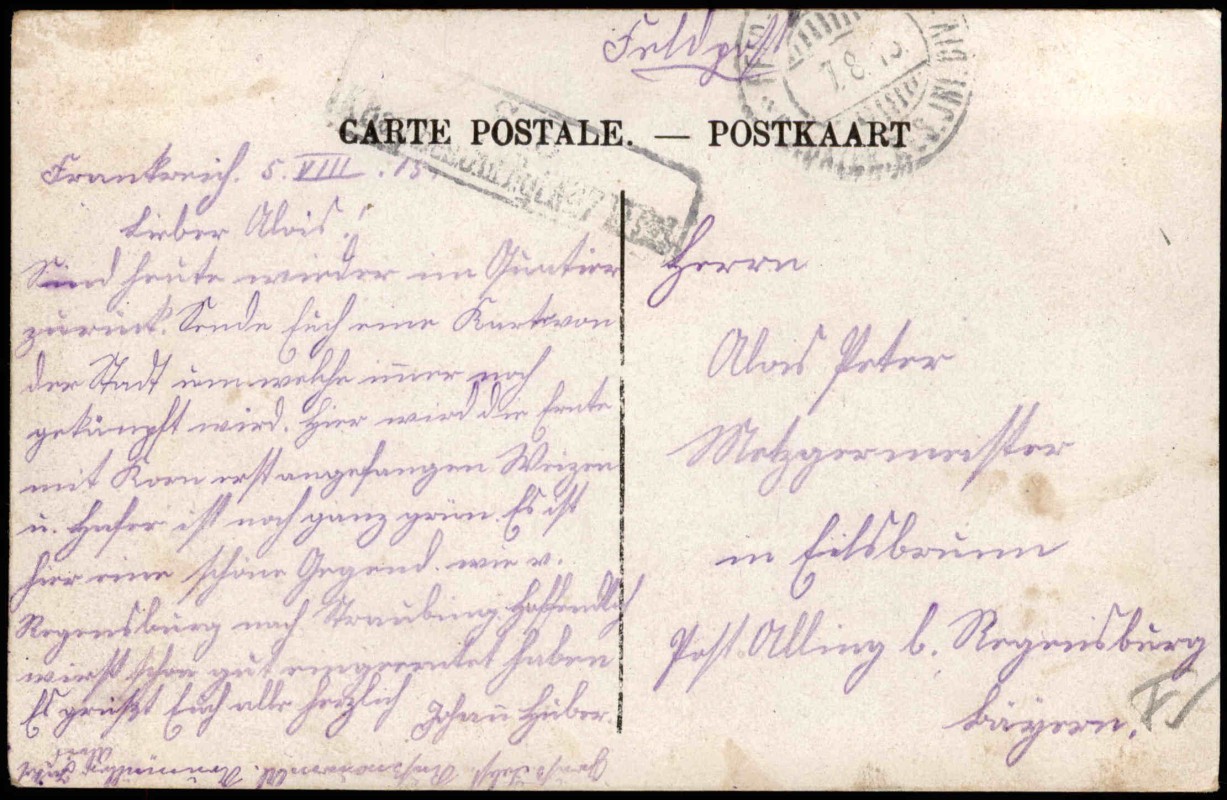 Feldpost
7.8.15
CARTE POSTALE. — POSTKAART
Frankreich. 5. VIII. 15
Lieber Alois!
Sind heute wieder im Quatier
zurück. Sende Euch eine Karte von
der Stadt um welche im̅er noch
gekämpft wird. Hier wird die Ernte
mit Korn erst angefangen Weizen
u. Hafer ist noch ganz grün. Es ist
hier eine schöne Gegend. wie v.
Regensburg nach Straubing. Hoffendlich
wirst schon gut eingeerntet haben
Es grüßt Euch alle herzlich
Johan̅ Huber.
Herrn
Alois Peter
Metzgermeister
in Eilsbrunn
Post Alling b. Regensburg
Bayern.